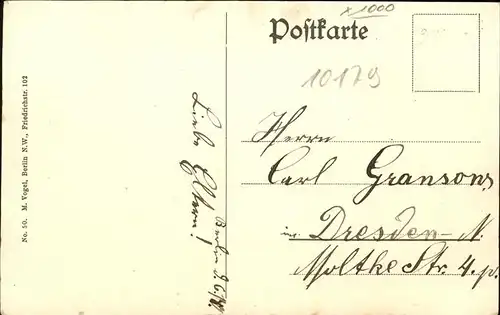 x 1000
Postkarte
10179
No. 50. M. Vogel, Berlin N.W., Friedrichstr. 102
Liebe Eltern!
Berlin
Herrn
Carl Gransons
in Dresden-N.
Moltke Str. 4. p.